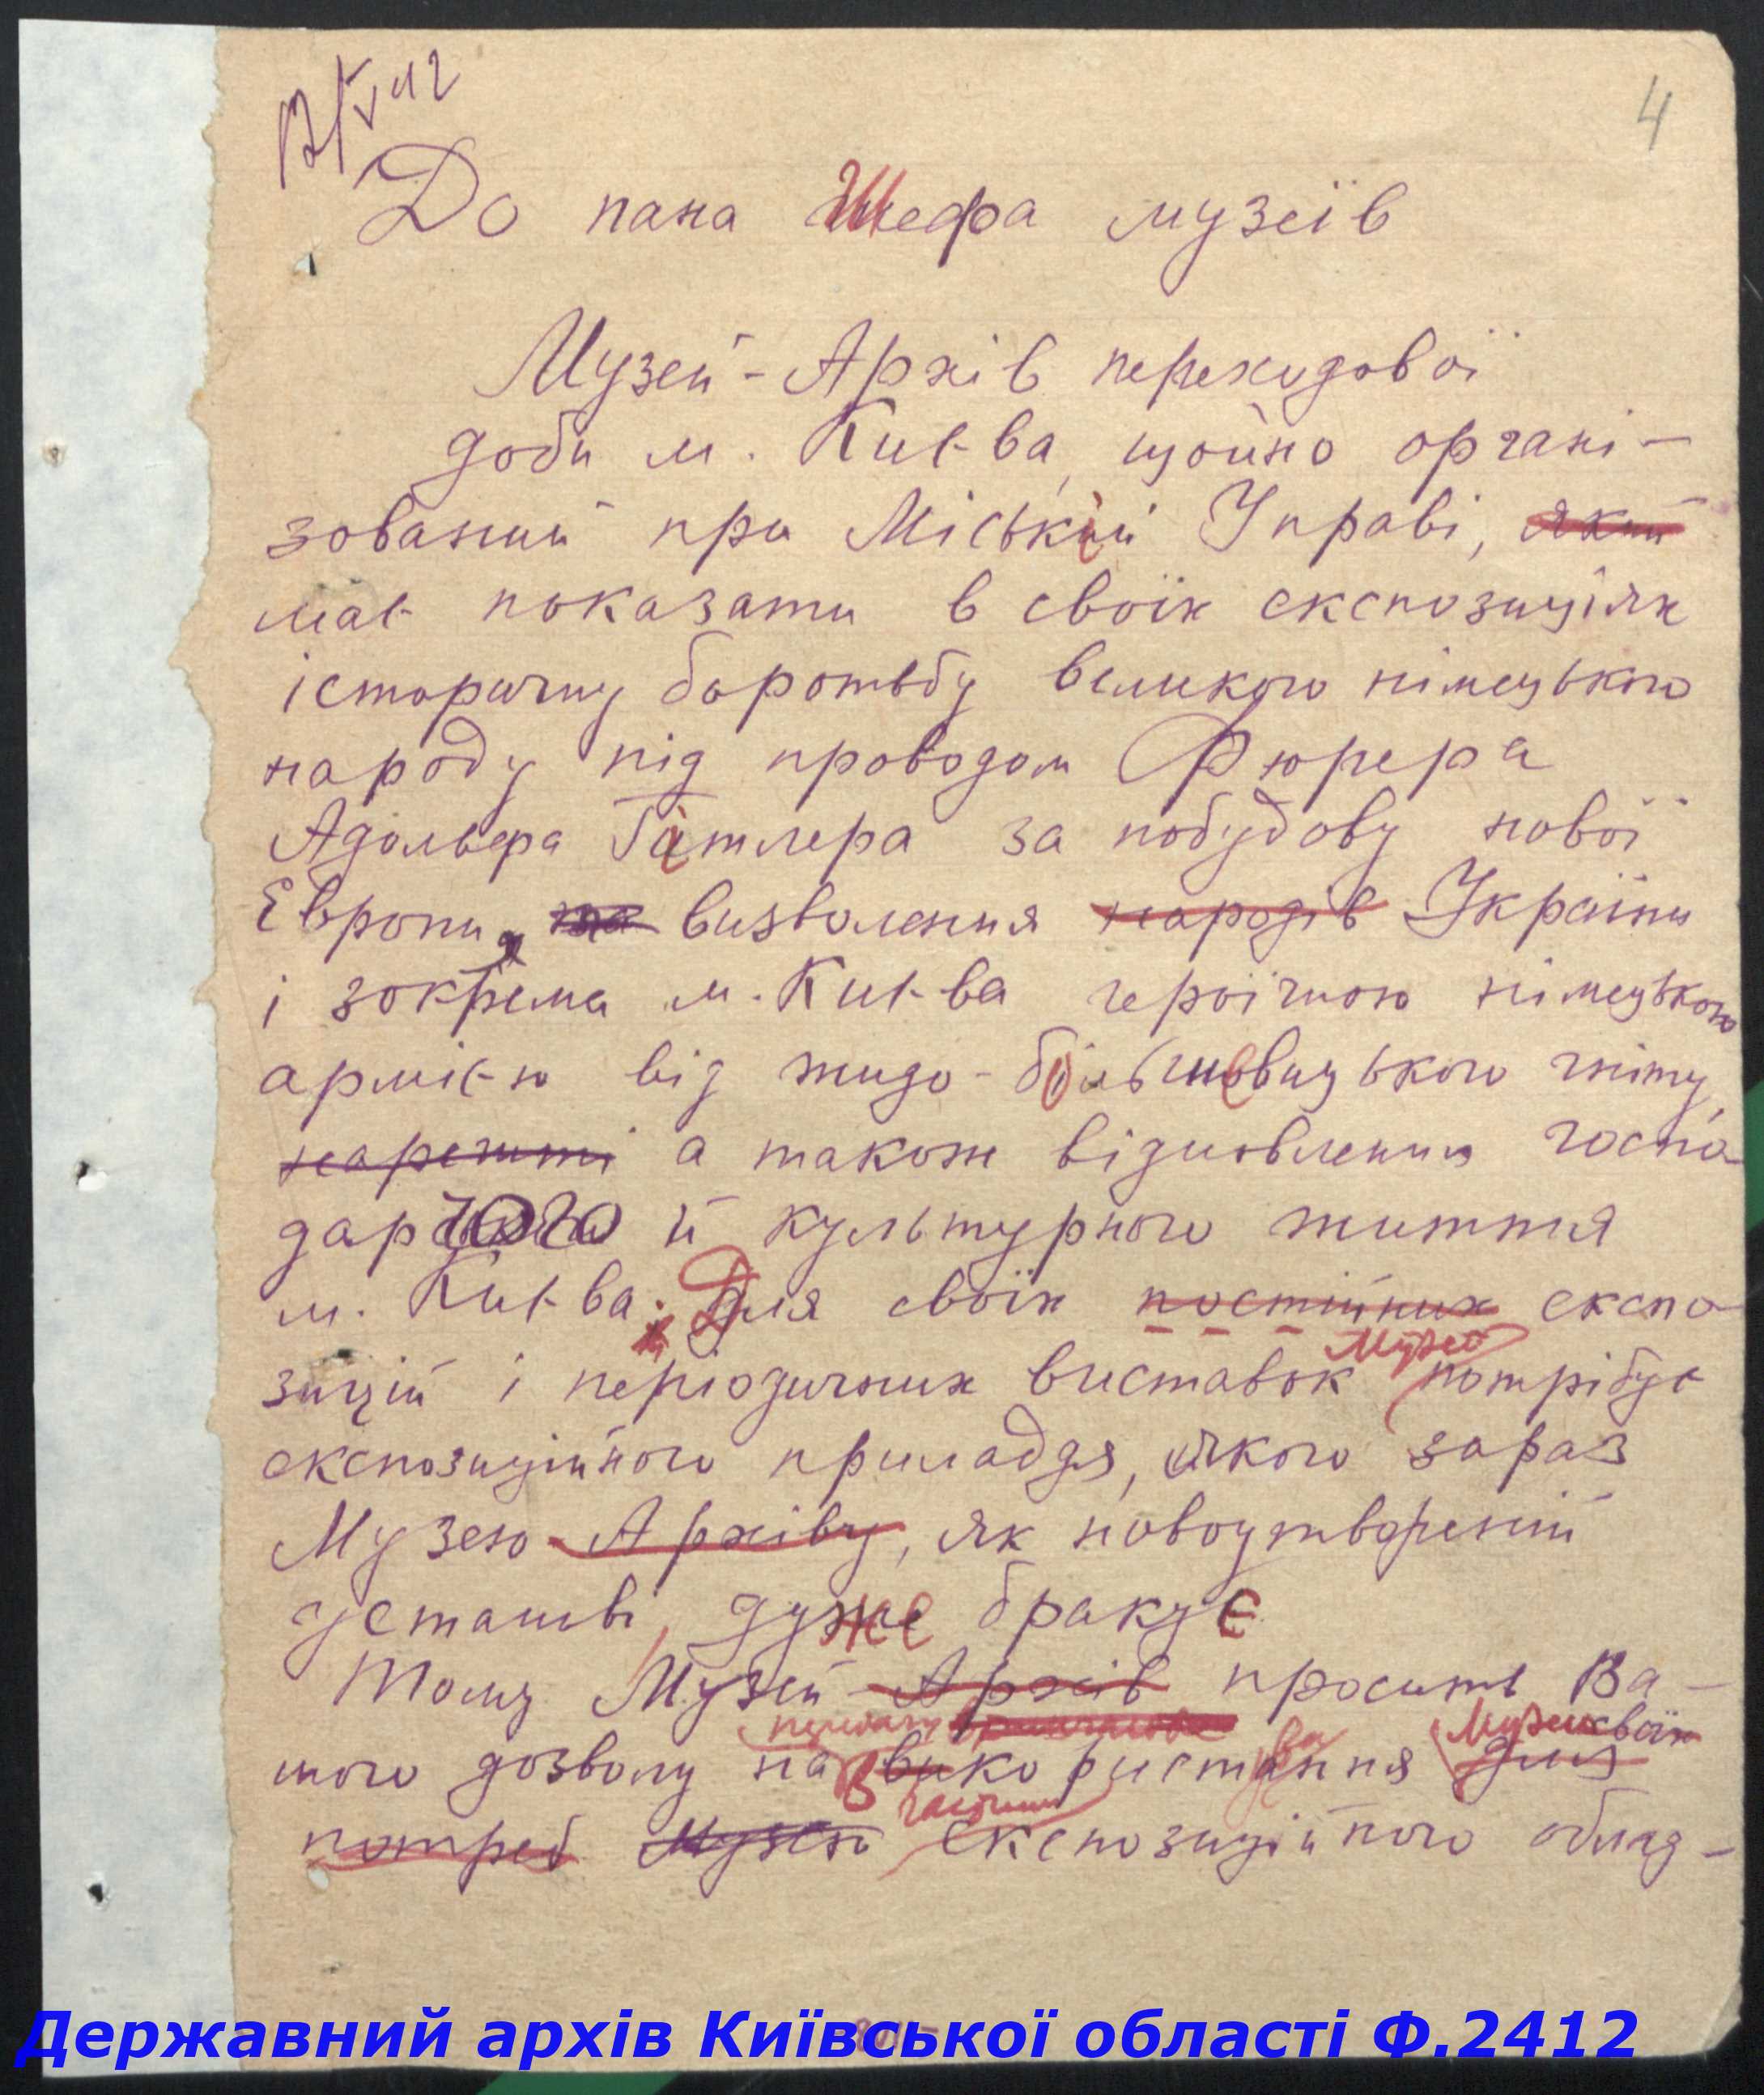 12/V 42
4
До пана Шефа музеїв
Музей-Архів переходової
доби м. Києва, щойно органі-
зований при Міській Управі, який
має показати в своїх експозиціях
історичну боротьбу великого німецького
народу під проводом Фюрера
Адольфа Гітлера за побудову нової
Европи, та визволення народів України
і зокрема м. Києва героїчною німецькою
армією від жидо-большевицького гніту,
нарешті а також відновлення госпо-
дарчого й культурного життя
м. Києва. Для своїх постійних експо-
Музей
зицій і періодичних виставок потрібує
експозиційного приладдя, якого зараз
Музею-Архіву, як новоутвореній
установі, дуже бракує
Тому Музей-Архів просить Ва-
Музеєві
шого дозволу на використання для
частини
потреб Музею експозиційного облад-
Державний архів Київської області Ф.2412